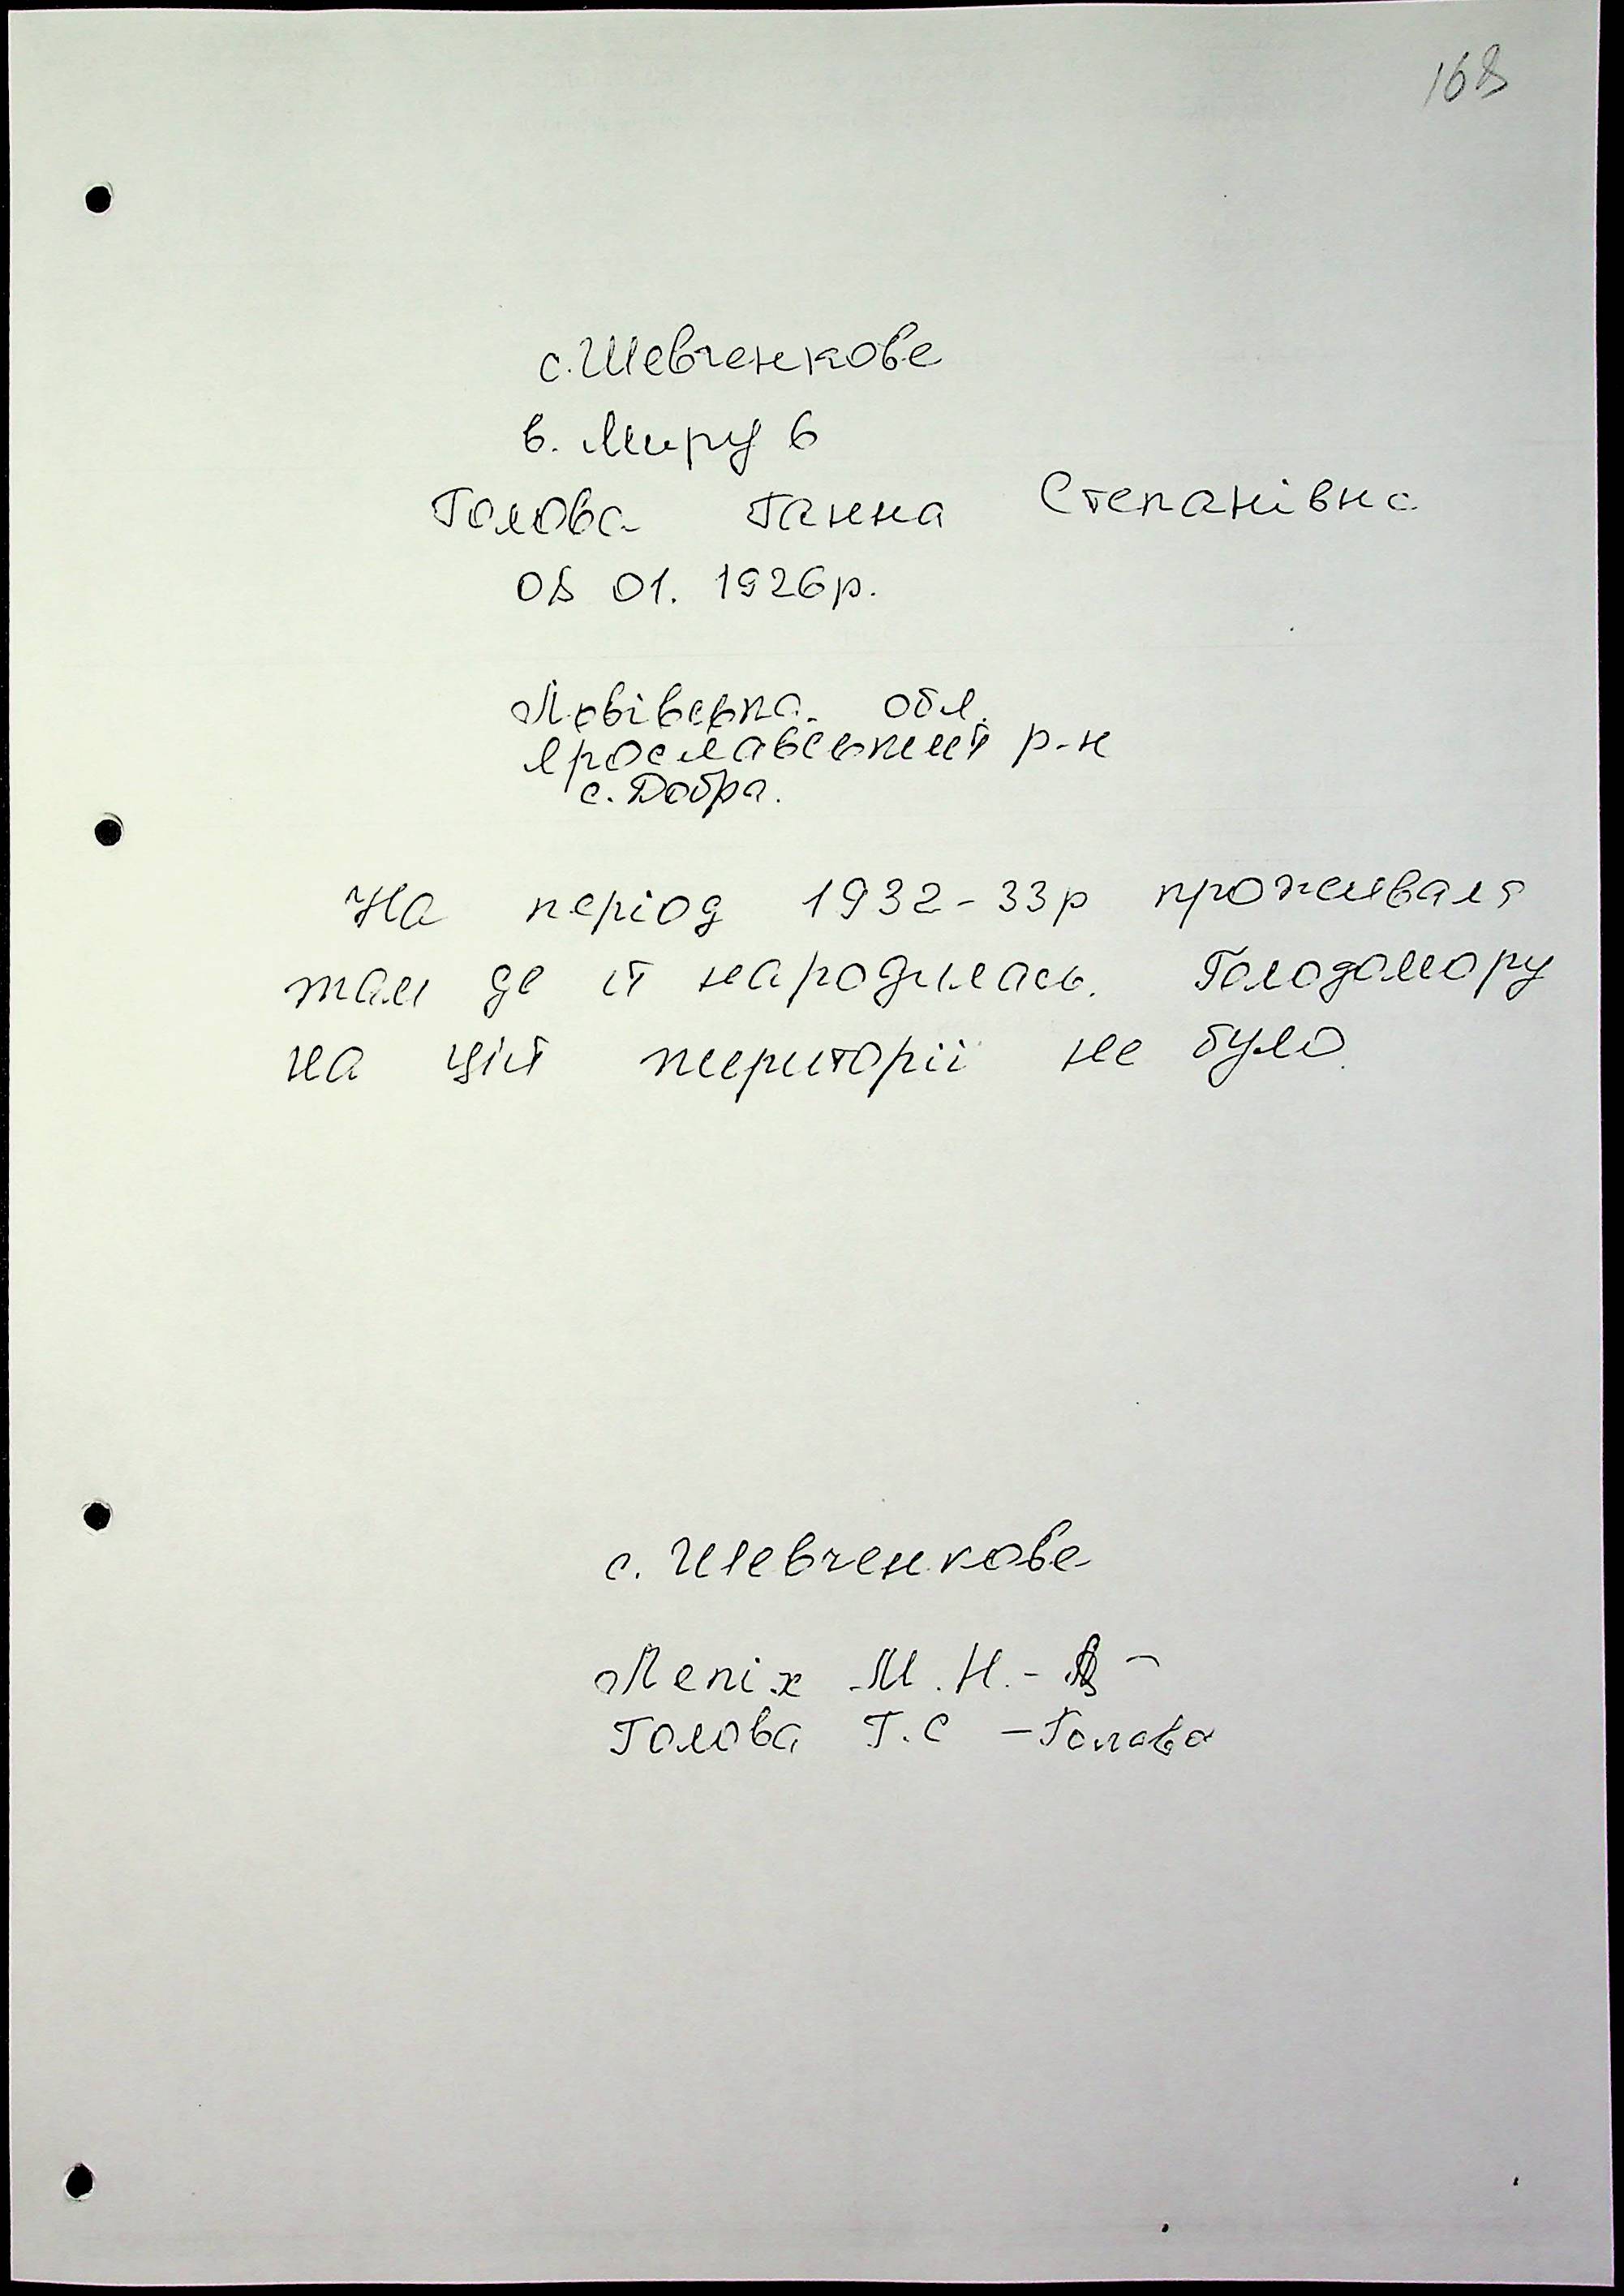 168
с. Шевченкове
в. Миру 6
Голова Ганна Степанівна
08 01. 1926р.
Львівська обл.
Ярославський р-н
с. Добра.
На період 1932-33р проживала
там де й народилась. Голодомору
на цій території не було.
с. Шевченкове
Лепіх М. Н. -
Голова Г. С - Голова